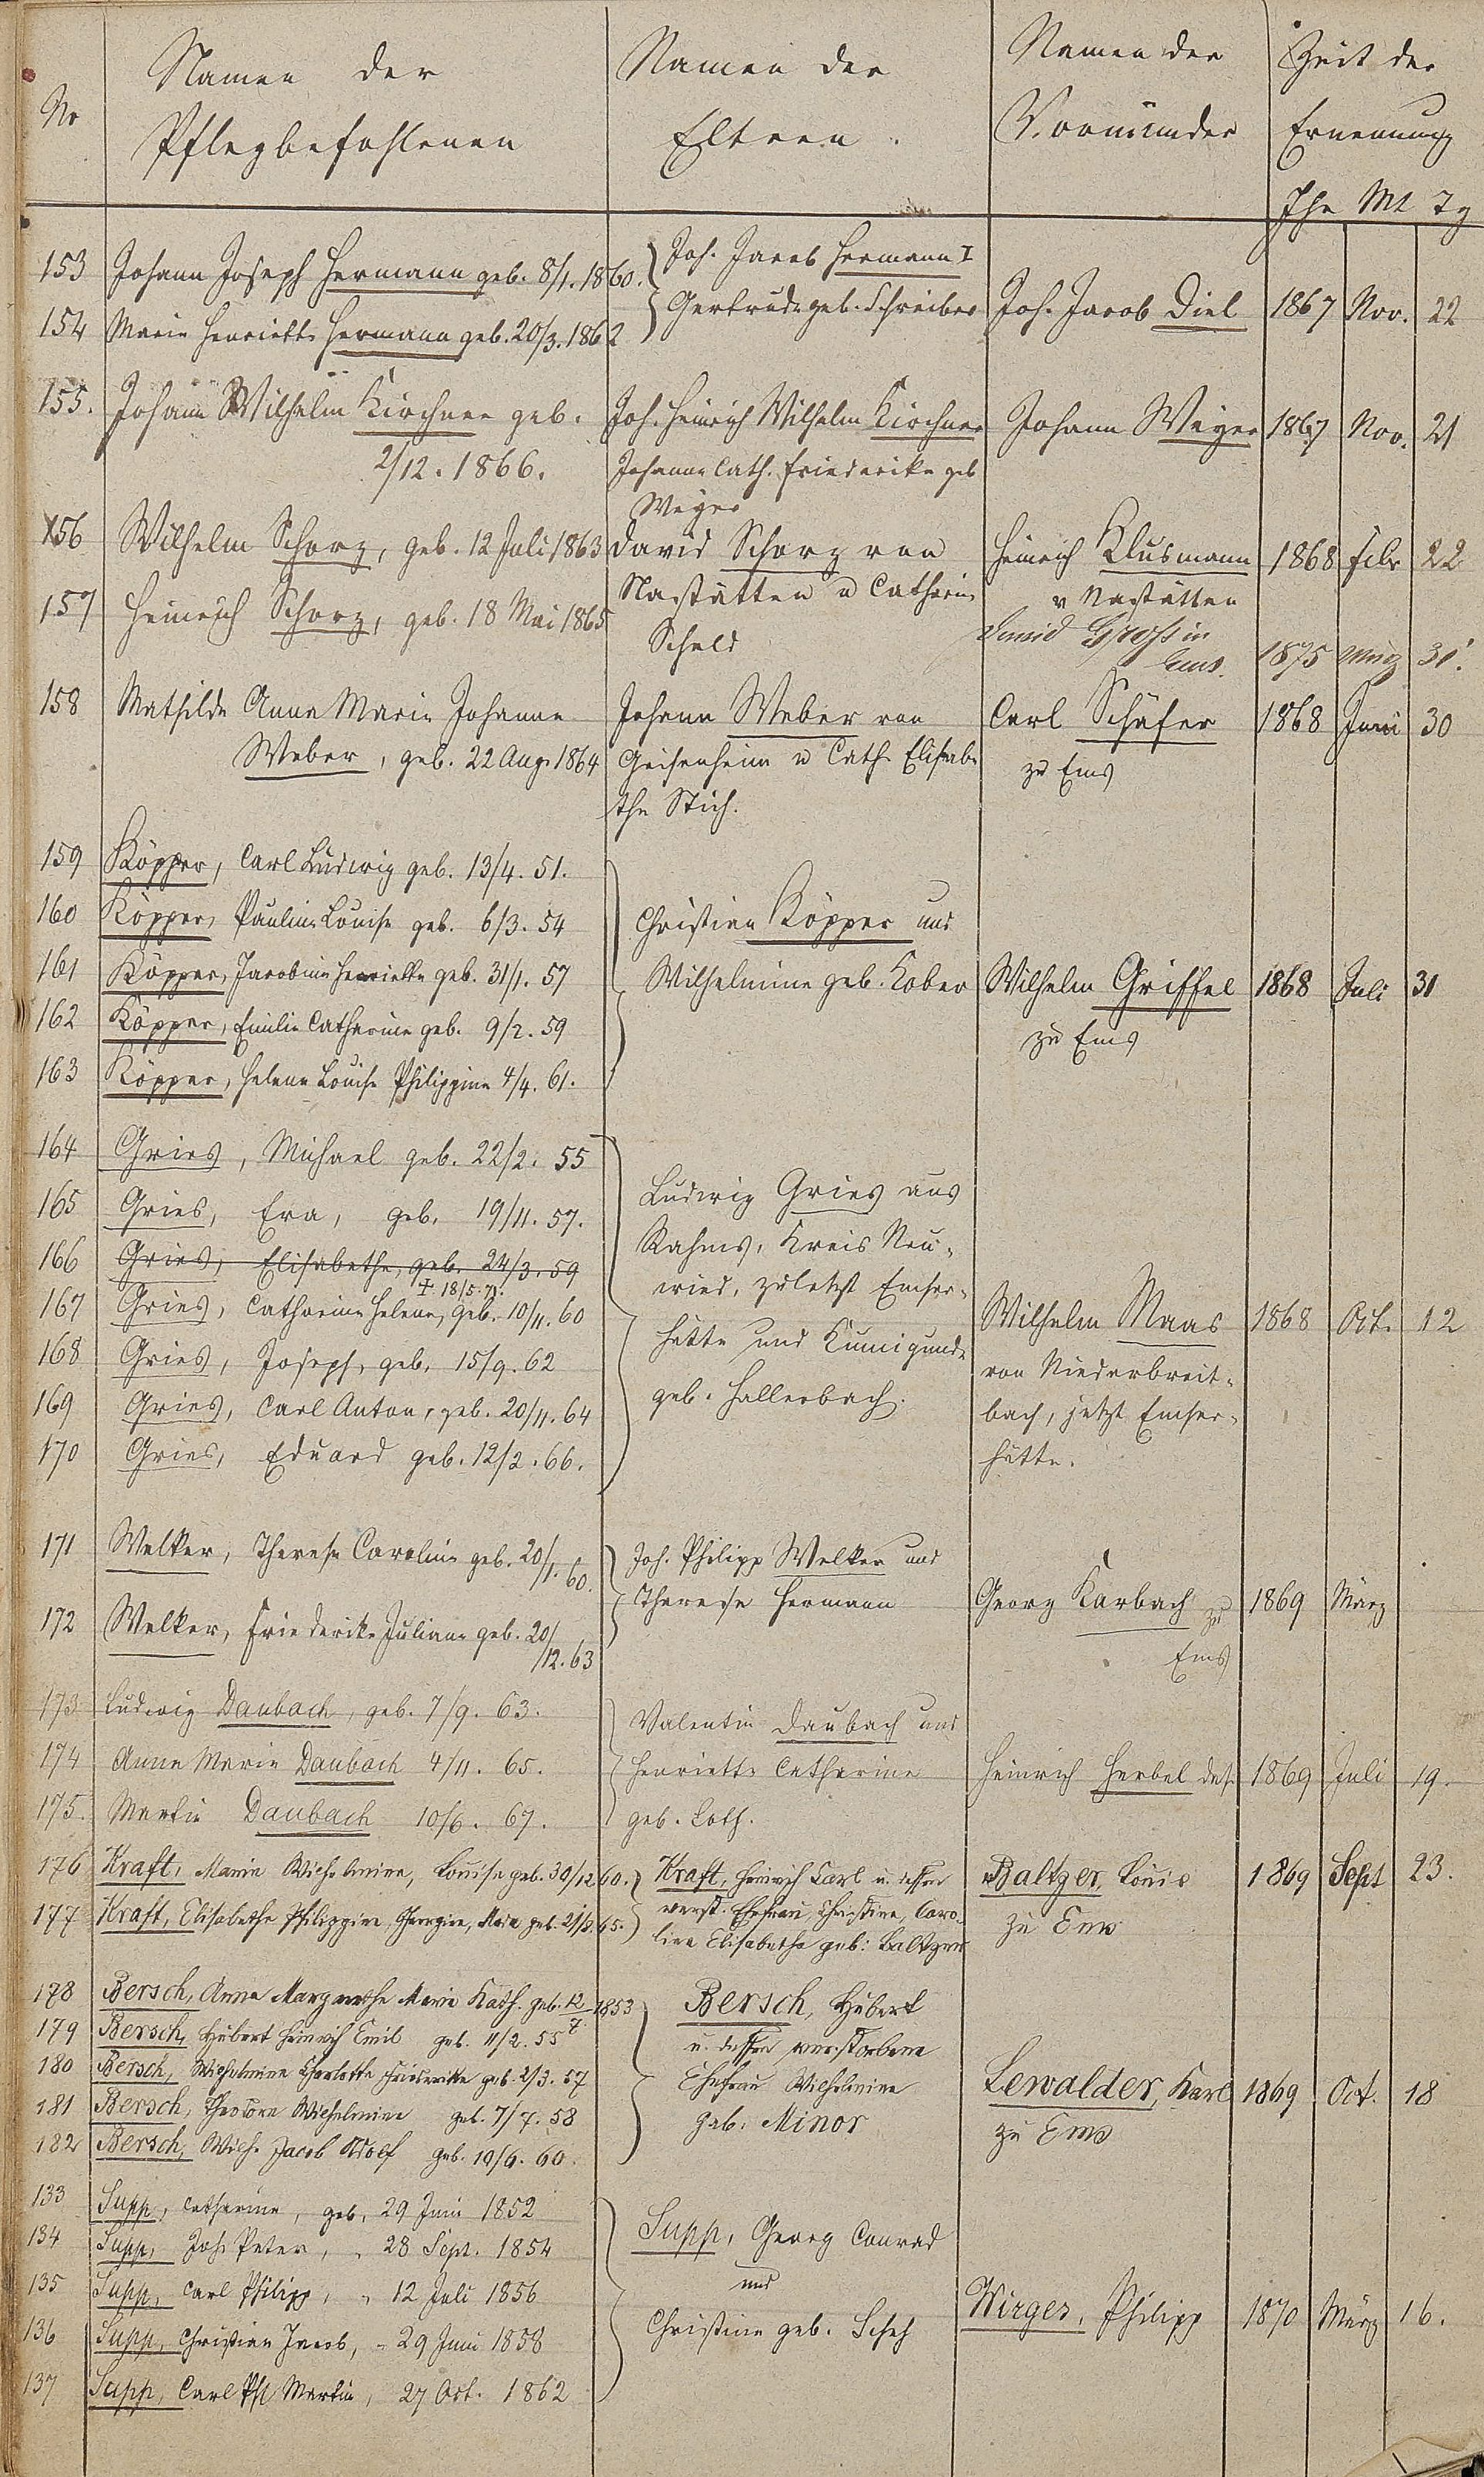 Nr
Namen der Pflegbefohlenen
Namen der Eltern.
Namen der Vormünder
Zeit der Ernennung
Jhr Mt Tg
153 Johann Joseph Hermann geb. 8/1. 1860.
154 Marie Henriette Hermann geb. 20/3. 1862
Joh. Jacob Hermann I
Gertrude geb. Schreiber
Joh. Jacob Diel 1867 Nov. 22
155. Johann Wilhelm Kirchner geb.
2/12. 1866.
Joh. Heinrich Wilhelm Kirchner
Johanne Cath. Friederike geb
Weyer
Johann Weyer 1867 Nov. 21
156 Wilhelm Schorz, geb. 12 Juli 1863
157 Heinrich Schorz, geb. 18 Mai 1865
David Schorz von
Nastätten u Catharine
Scheld
Heinrich Klusmann 1868 Febr 22
v Nastätten
David Groß in
Ems. 1875 März 31.
158 Mathilde Anna Marie Johanne
Weber, geb. 22 Aug 1864
Johann Weber von
Geisenheim u Cath. Elisabe
the Stich.
Carl Schäfer 1868 Juni 30
zu Ems
159 Köpper, Carl Ludwig geb. 13/4. 51.
160 Köpper, Pauline Louise geb. 6/3. 54
161 Köpper, Jacobine Henriette geb. 31/1. 57
162 Köpper, Emilie Catharine geb. 9/2. 59
163 Köpper, Helene Louise Philippine 4/4. 61.
Christian Köpper und
Wilhelmine geb. Kober
Wilhelm Griffel 1868 Juli 31
zu Ems
164 Gries, Michael geb. 22/2. 55
165 Gries, Eva, geb. 19/11. 57.
166 Gries, Elisabethe, geb. 24/3. 59
† 18/5. 71.
167 Gries, Catharine Helene, geb. 10/11. 60
168 Gries, Joseph, geb. 15/9. 62
169 Gries, Carl Anton, geb. 20/11. 64
170 Gries, Eduard geb. 12/2. 66.
Ludwig Gries aus
Rahms, Kreis Neu-
wied, zuletzt Emser-
hütte und Kunigunde
geb. Hallerbach.
Wilhelm Maas 1868 Oct. 12
von Niederbreit-
bach, jetzt Emser-
hütte.
171 Welker, Therese Caroline geb. 20/1. 60.
172 Welker, Friederike Juliane geb. 20/12. 63
Joh. Philipp Welker und
Therese Hermann
Georg Karbach zu 1869 März
Ems
173 Ludwig Daubach, geb. 7/9. 63.
174 Anna Marie Daubach 4/11. 65.
175. Martin Daubach 10/6. 67.
Valentin Daubach und
Henriette Catharine
geb. Loth.
Heinrich Herbel das. 1869 Juli 19.
176 Kraft, Marie Wilhelmine, Louise geb. 30/12 60.
177 Kraft, Elisabethe Philippine, Georgine, Marie geb. 21/2. 65.
Kraft, Heinrich Carl u. dessen
verst. Ehefrau, Christine, Caro-
line Elisabethe geb: Baltzer
Baltzer, Louis 1869 Sept 23.
zu Ems
178 Bersch, Anna Margarethe Marie Kath. geb. 12/7. 1853
179 Bersch, Hubert Heinrich Emil geb. 11/2. 55
180 Bersch, Wilhelmine Charlotte Friederike geb. 2/3. 57
181 Bersch, Theodore Wilhelmine geb. 7/7. 58
182 Bersch, Wilh. Jacob Adolf geb. 10/6. 60.
Bersch, Hubert
u. dessen verstorbene
Ehefrau Wilhelmine
geb: Minor
Lewalder, Karl 1869 Oct. 18
zu Ems
133 Supp, Catharine, geb, 29 Juni 1852
134 Supp, Joh. Peter, " 28 Sept. 1854
135 Supp, Carl Philipp, " 12 Juli 1856
136 Supp, Christian Jacob, " 29 Juni 1858
137 Supp, Carl Phl Martin, 27 Oct. 1862
Supp, Georg Conrad
und
Christine geb. Scheh
Wirges, Philipp 1870 März 16.